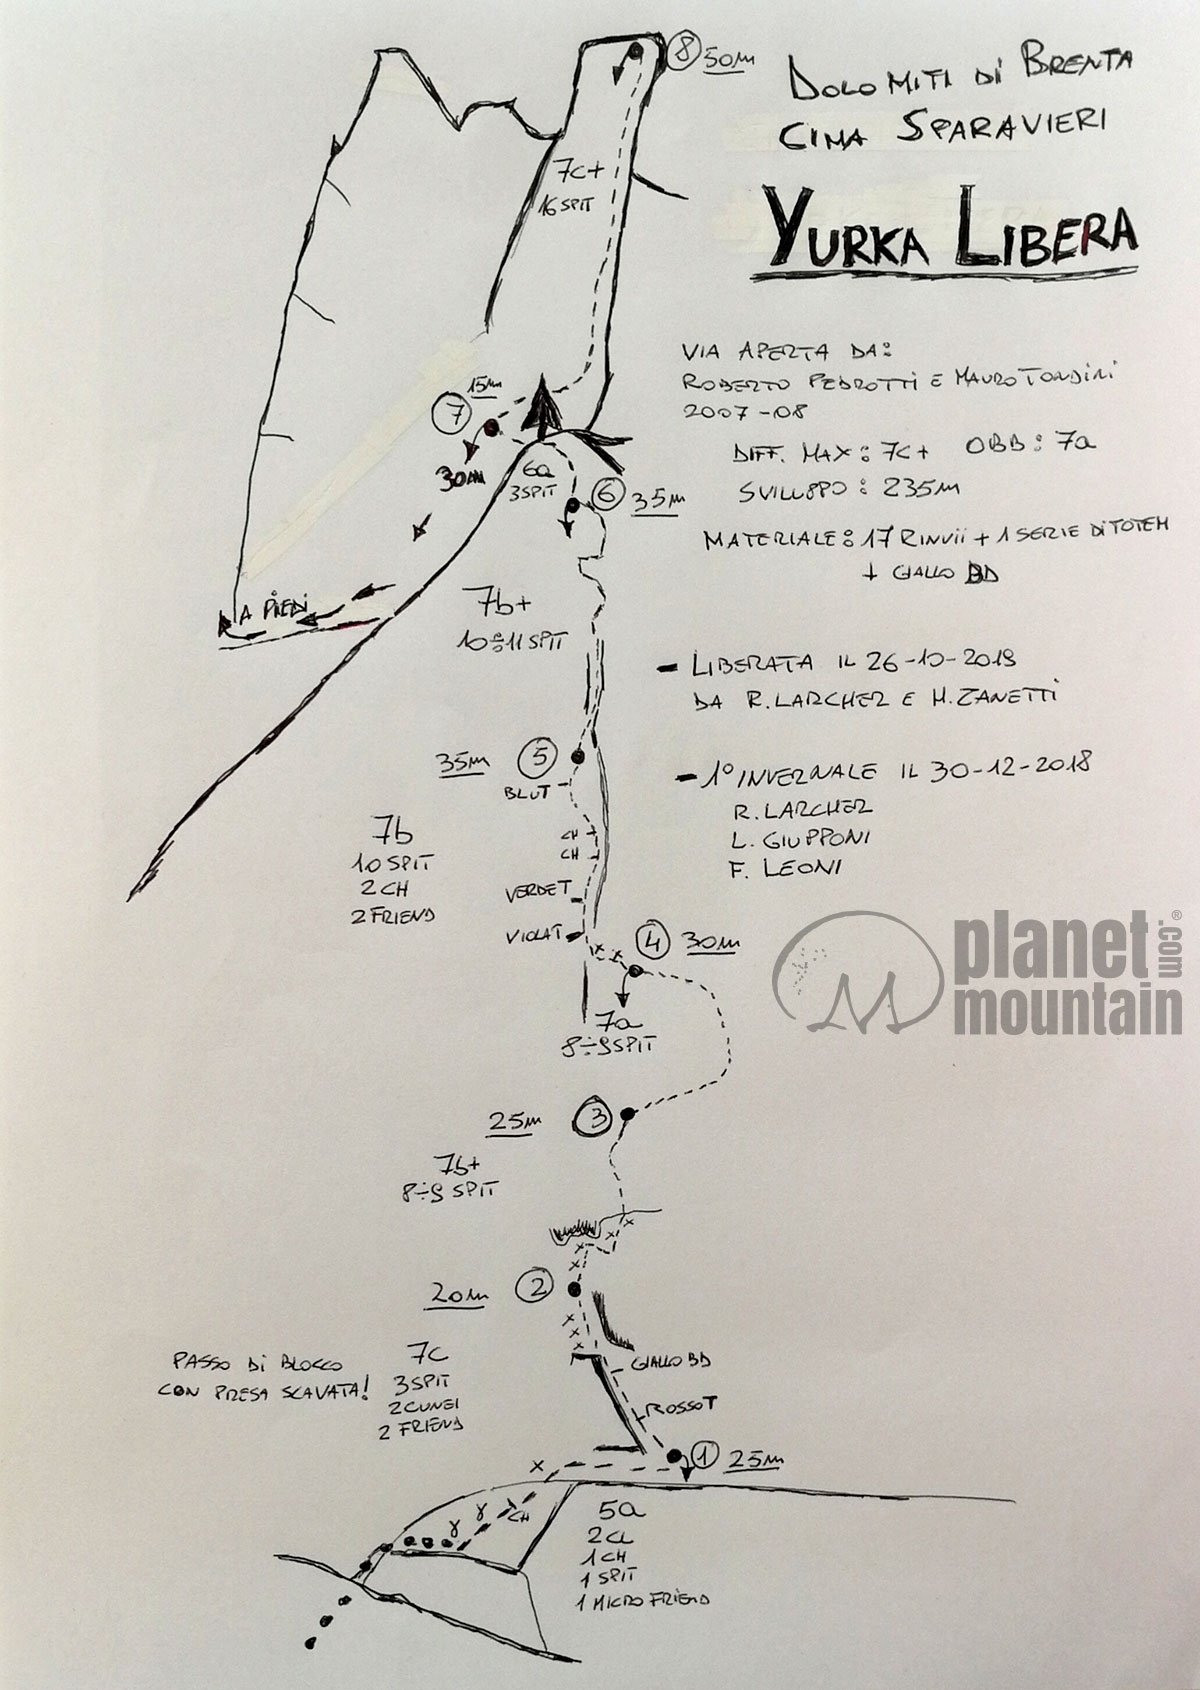 8 50m
DOLOMITI DI BRENTA
CIMA SPARAVIERI
YURKA LIBERA
7c+
16 SPIT
VIA APERTA DA:
ROBERTO PEDROTTI E MAURO TONDINI
2007-08
DIFF. MAX: 7c+ OBB: 7a
SVILUPPO: 235m
MATERIALE: 17 RINVII + 1 SERIE DI TOTEM
+ GIALLO BD
15m
7
30m
6a
3 SPIT
6 35m
A PIEDI
7b+
10÷11 SPIT
- LIBERATA IL 26-10-2019
DA R. LARCHER E M. ZANETTI
- 1° INVERNALE IL 30-12-2018
R. LARCHER
L. GIUPPONI
F. LEONI
35m 5
BLU T
CH
CH
7b
10 SPIT
2 CH
2 FRIEND
VERDE T
VIOLA T
4 30m
7a
8÷9 SPIT
planet
mountain
.com
®
25m 3
7b+
8÷9 SPIT
20m 2
PASSO DI BLOCCO
CON PRESA SCAVATA!
7c
3 SPIT
2 CUNEI
2 FRIEND
GIALLO BD
ROSSO T
1 25m
CH
5a
2 CL
1 CH
1 SPIT
1 MICRO FRIEND